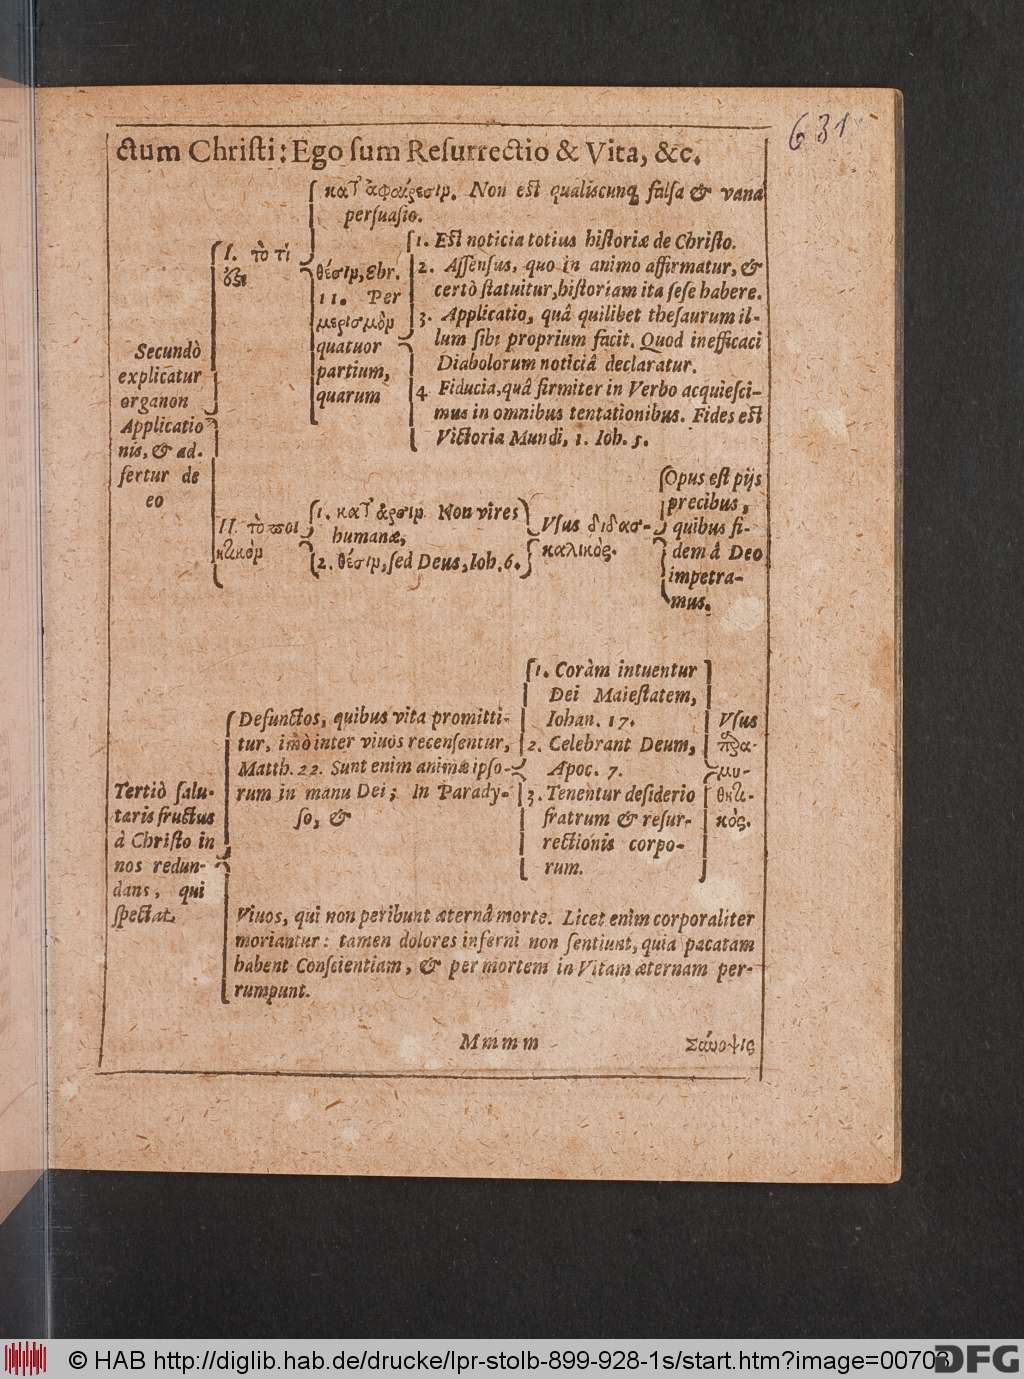 631
ctum Christi: Ego sum Resurrectio & Vita, &c.
κατ' ἀφαίρεσιν. Non est qualiscunq; falsa & vana
persuasio.
I. τὸ τί
ὅξι
θέσιν, Ebr.
11. Per
μερισμὸν
quatuor
partium,
quarum
1. Est noticia totius historiæ de Christo.
2. Assensus, quo in animo affirmatur, &
certò statuitur, historiam ita sese habere.
3. Applicatio, quâ quilibet thesaurum il-
lum sibi proprium facit. Quod inefficaci
Diabolorum noticiâ declaratur.
4. Fiducia, quâ firmiter in Verbo acquiesci-
mus in omnibus tentationibus. Fides est
Victoria Mundi, 1. Ioh. 5.
Secundò
explicatur
organon
Applicatio
nis, & ad-
fertur de
eo
II. τὸ ποι
ητικόν
1. κατ' ἄρσιν Non vires
humanæ,
2. θέσιν, sed Deus, Ioh. 6.
Vsus διδασ-
καλικὸς.
Opus est pijs
precibus,
quibus fi-
dem â Deo
impetra-
mus.
Tertiò salu-
taris fructus
à Christo in
nos redun-
dans, qui
spectat
Defunctos, quibus vita promitti-
tur, imò inter viuos recensentur,
Matth. 22. Sunt enim animæ ipso-
rum in manu Dei; In Parady-
so, &
1. Coràm intuentur
Dei Maiestatem,
Iohan. 17.
2. Celebrant Deum,
Apoc. 7.
3. Tenentur desiderio
fratrum & resur-
rectionis corpo-
rum.
Vsus
παρα-
μυ-
θητι-
κὸς.
Viuos, qui non peribunt æternâ morte. Licet enim corporaliter
moriantur: tamen dolores inferni non sentiunt, quia pacatam
habent Conscientiam, & per mortem in Vitam æternam per-
rumpunt.
Mmmm
Σύνοψις
© HAB http://diglib.hab.de/drucke/lpr-stolb-899-928-1s/start.htm?image=00703
DFG